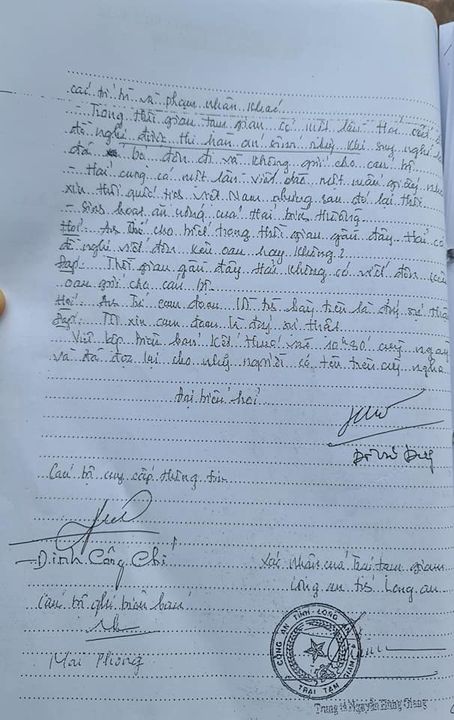 các bị bị và phạm nhân khác
- Trong thời gian tạm giam có một lần Hải viết
đề nghị được thi hành án sớm nhưng khi suy nghĩ lại
đã bỏ đơn đi và không gửi cho cán bộ
- Hải cũng có một lần viết đơn một mẫu giấy
xin thôi quốc tịch Việt Nam nhưng sau đó lại thôi
- Sinh hoạt ăn uống của Hải bình thường
Hỏi: Anh cho biết trong thời gian gần đây Hải có
đề nghị viết đơn kêu oan hay không?
Đáp: Thời gian gần đây Hải không có viết đơn kêu
oan gửi cho cán bộ.
Hỏi: Anh cam đoan lời trình bày trên là đúng sự thật
Đáp: Tôi xin cam đoan là đúng sự thật
Việc lập biên bản kết thúc vào 10h30 cùng ngày
và đã đọc lại cho những người có tên trên cùng nghe
Đại diện hỏi
Cán bộ cung cấp thông tin
Đinh Công Chí
Xác nhận của Trại tạm giam
Long an tỉnh Long an
Cán bộ ghi biên bản
Mai Phong
CÔNG AN TỈNH LONG AN
TRẠI TẠM
Trung tá Nguyễn Hồng Giang